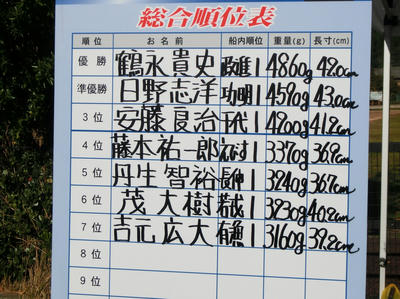 総合順位表
順位 お名前 船内順位 重量(g) 長寸(cm)
優勝 鶴永貴史 政進1 4860g 49.0cm
準優勝 日野志洋 功明1 4590g 43.0cm
3位 安藤良治 千代1 4200g 41.2cm
4位 藤本祐一郎 1 3370g 36.9cm
5位 丹生智裕 長伸1 3240g 36.7cm
6位 茂大樹 1 3230g 40.2cm
7位 吉元広大 1 3160g 39.2cm
8位
9位